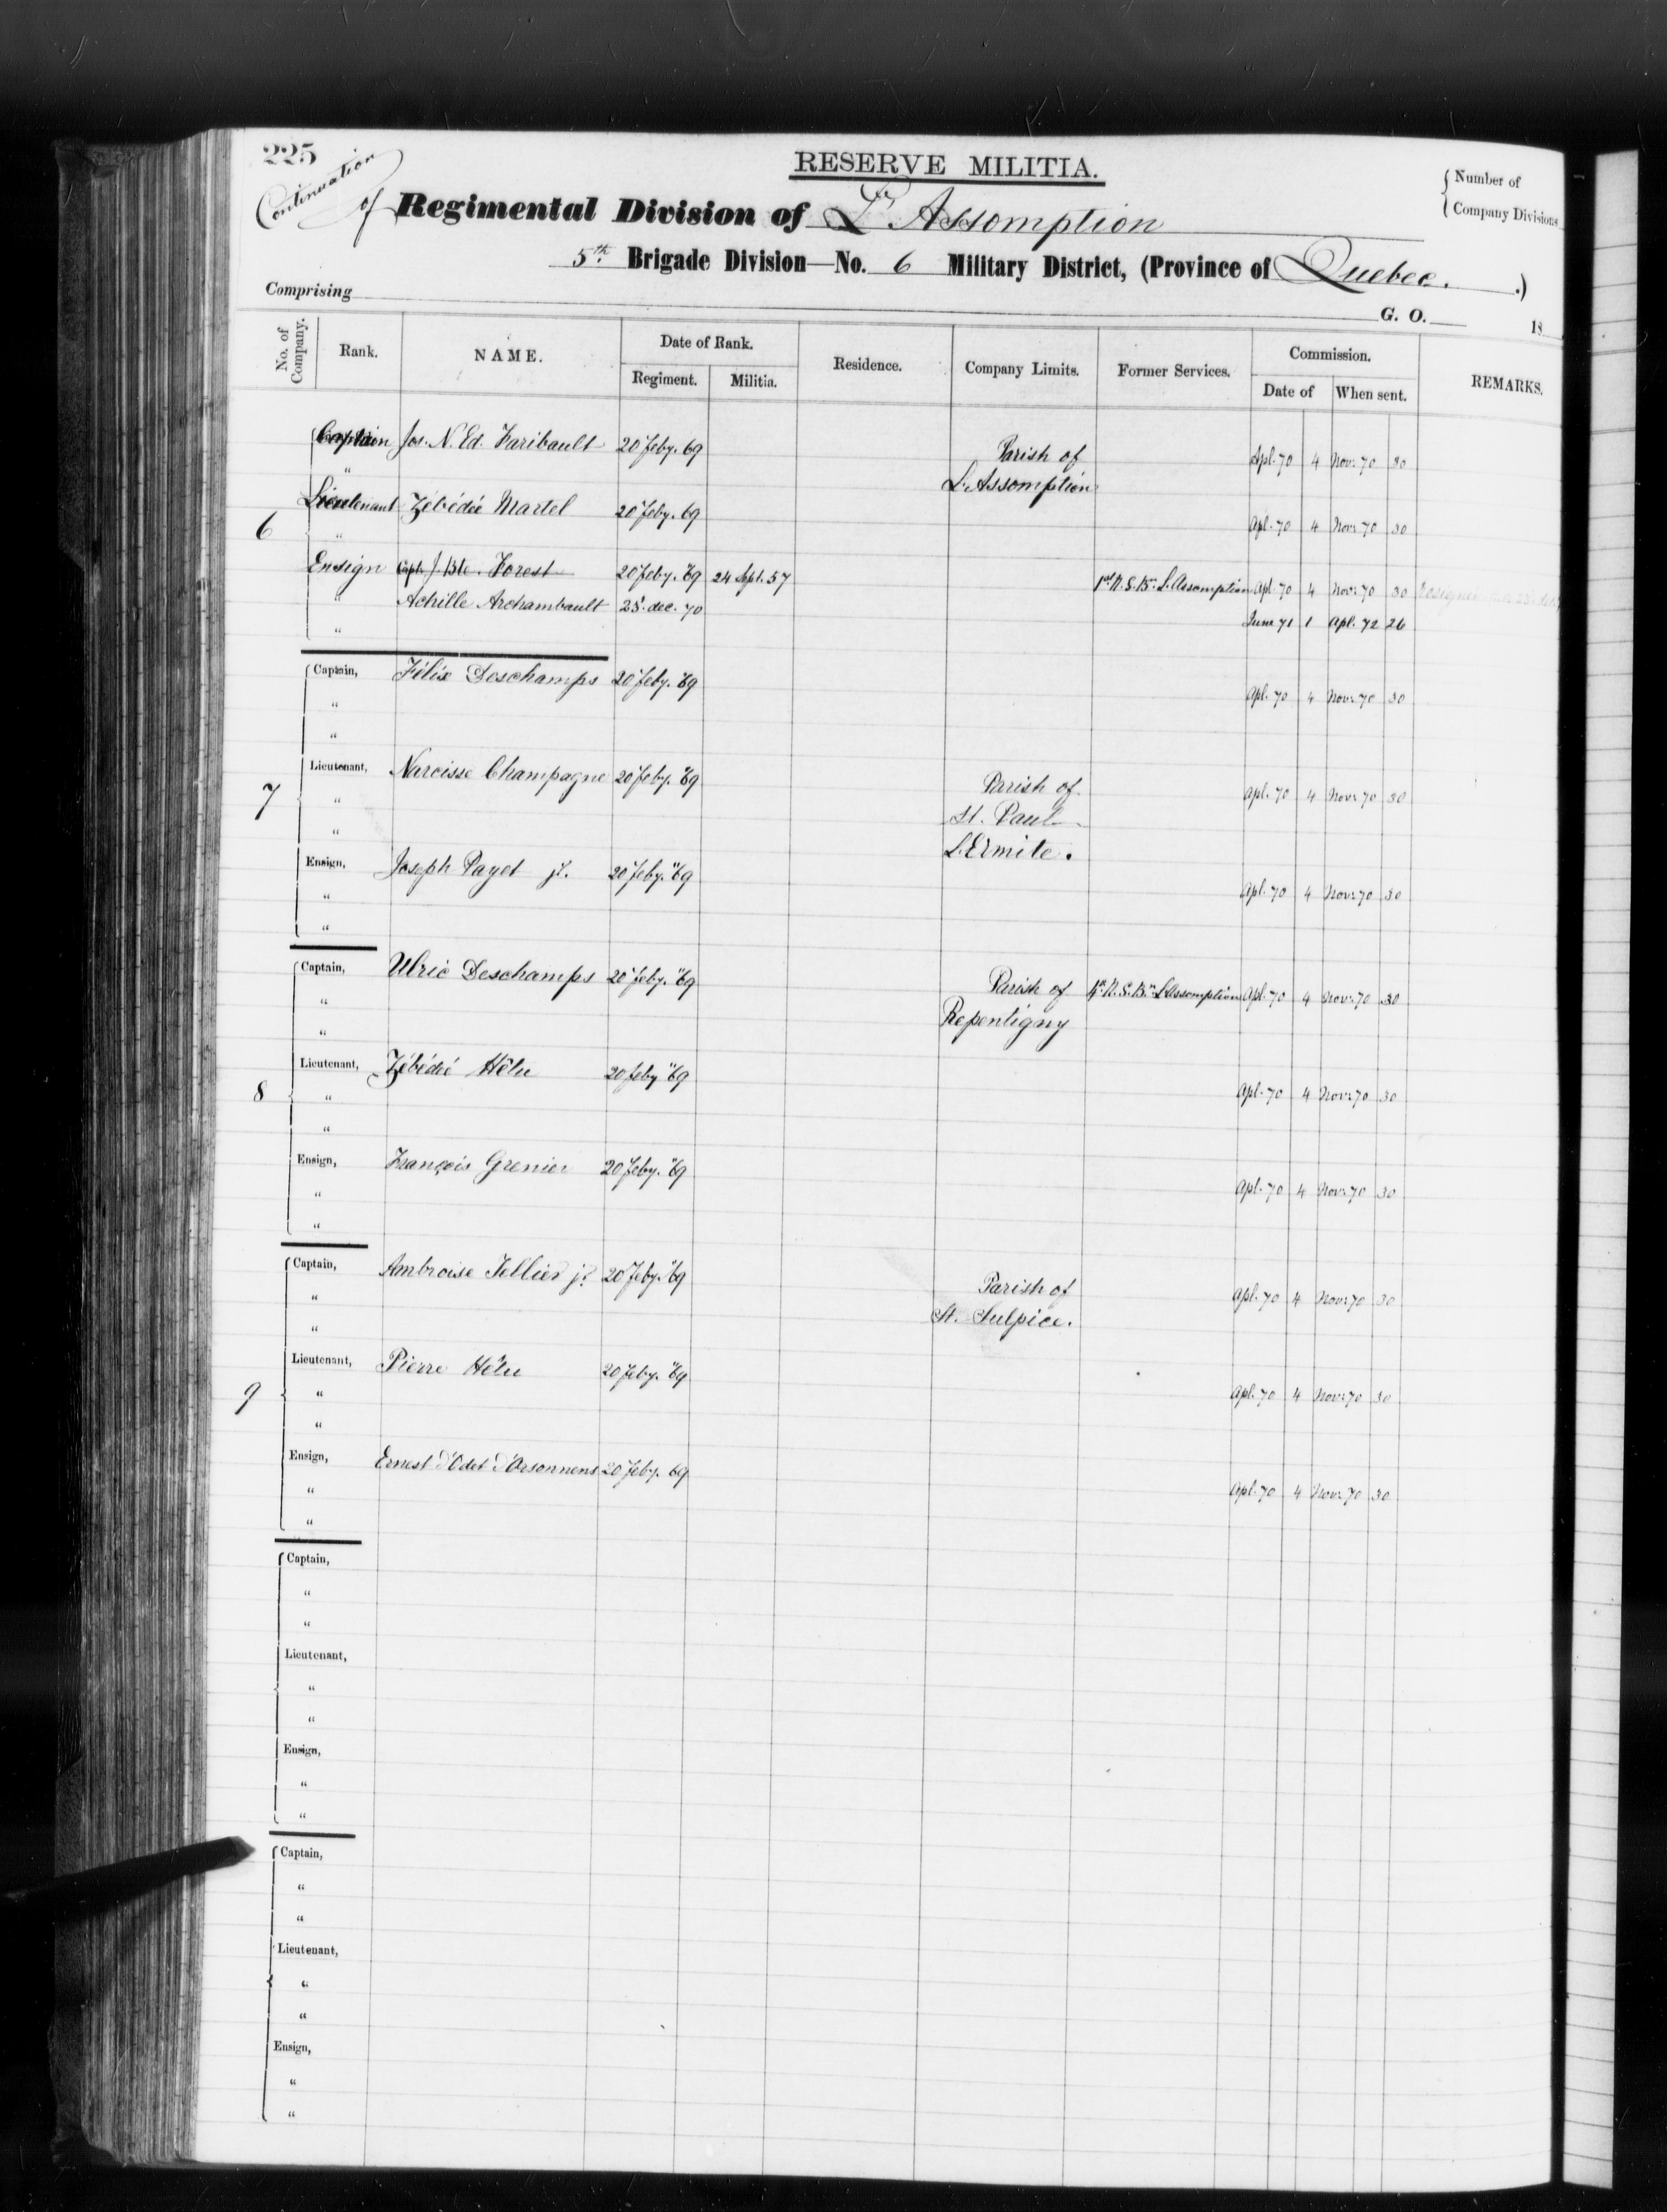 225
RESERVE MILITIA.
Continuation of Regimental Division of L'Assomption
{ Number of
{ Company Divisions
5th Brigade Division—No. 6 Military District, (Province of Quebec. .)
Comprising
G. O. 18
No. of Company. Rank. NAME. Date of Rank. Residence. Company Limits. Former Services. Commission. REMARKS.
Regiment. Militia. Date of When sent.
Captain Jos. N. Ed. Faribault 20 feby. 69 Parish of Apl. 70 4 Nov. 70 30
" L'Assomption
Lieutenant Zébédée Martel 20 feby. 69 Apl. 70 4 Nov. 70 30
6 "
Ensign Capt. J. Bte. Forest 20 feby. 69 24 Sept. 57 1st N.S.Bn. L'Assomption Apl. 70 4 Nov. 70 30
" Achille Archambault 28. dec. 70 June 71 1 Apl. 72 26
"
Captain, Félix Deschamps 20 feby. 69 Apl. 70 4 Nov. 70 30
"
"
Lieutenant, Narcisse Champagne 20 feby. 69 Parish of Apl. 70 4 Nov. 70 30
7 " St. Paul
" L'Ermite.
Ensign, Joseph Payet jr. 20 feby. 69 Apl. 70 4 Nov. 70 30
"
"
Captain, Ulric Deschamps 20 feby. 69 Parish of N.S.Bn. L'Assomption Apl. 70 4 Nov. 70 30
" Repentigny
"
Lieutenant, Zébédée Hêlu 20 feby 69 Apl. 70 4 Nov. 70 30
8 "
"
Ensign, François Grenier 20 feby. 69 Apl. 70 4 Nov. 70 30
"
"
Captain, Ambroise Tellier jr. 20 feby. 69 Parish of Apl. 70 4 Nov. 70 30
" St. Sulpice.
"
Lieutenant, Pierre Hêlu 20 feby. 69 Apl. 70 4 Nov. 70 30
9 "
"
Ensign, Ernest d'Odet d'Orsonnens 20 feby. 69 Apl. 70 4 Nov. 70 30
"
"
Captain,
"
"
Lieutenant,
"
"
Ensign,
"
"
Captain,
"
"
Lieutenant,
"
"
Ensign,
"
"